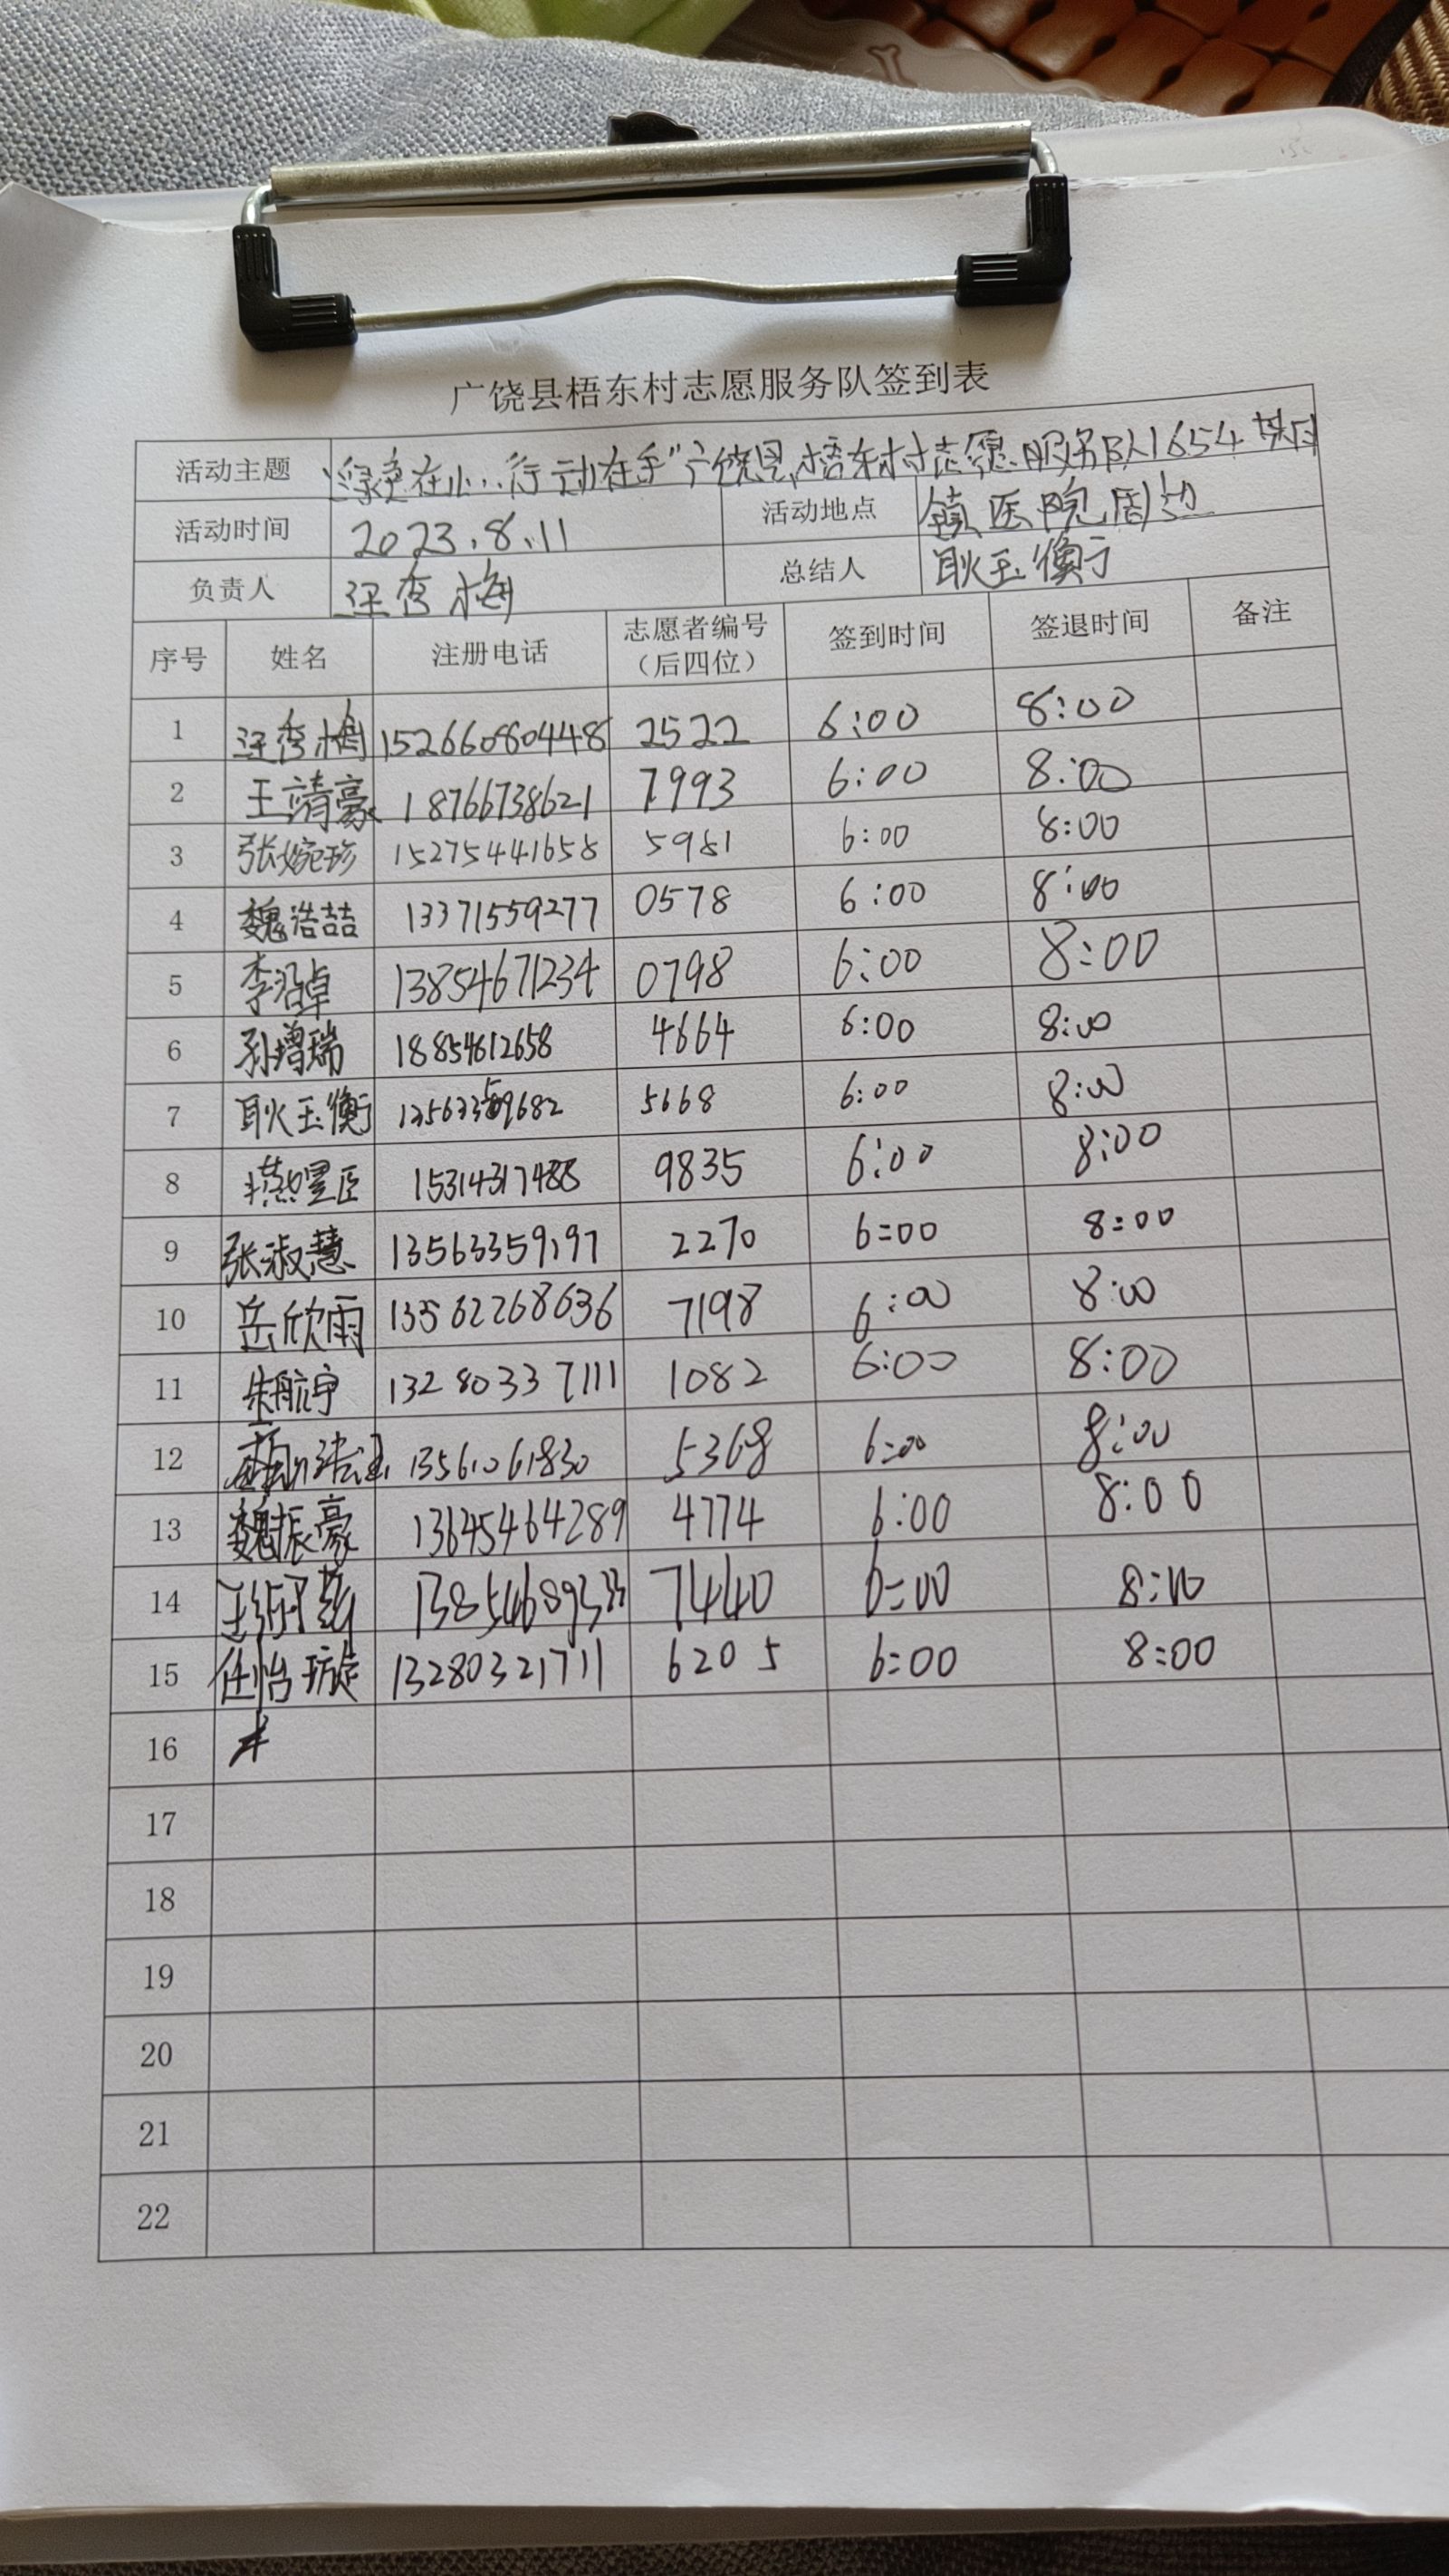 广饶县梧东村志愿服务队签到表
活动主题 “绿色在心,行动在手”广饶县梧东村志愿服务队1654期
活动时间 2023.8.11 活动地点 镇医院周边
负责人 汪秀梅 总结人 耿玉衡
序号 姓名 注册电话 志愿者编号（后四位） 签到时间 签退时间 备注
1 汪秀梅 15266080448 2522 6:00 8:00
2 王靖豪 18766738621 7993 6:00 8:00
3 张婉珍 15275441658 5981 6:00 8:00
4 魏浩喆 13371559277 0578 6:00 8:00
5 李沼卓 13854671234 0798 6:00 8:00
6 孙增瑞 18854612658 4664 6:00 8:00
7 耿玉衡 5668 6:00 8:00
8 15314317488 9835 6:00 8:00
9 张淑慧 13563359197 2270 6:00 8:00
10 岳欣雨 13562268636 7198 6:00 8:00
11 朱航宇 13280337111 1082 6:00 8:00
12 13561061830 5368 6:00 8:00
13 魏振豪 13645464289 4774 6:00 8:00
14 13854689333 7440 6:00 8:00
15 任怡璇 13280321711 6205 6:00 8:00
16
17
18
19
20
21
22